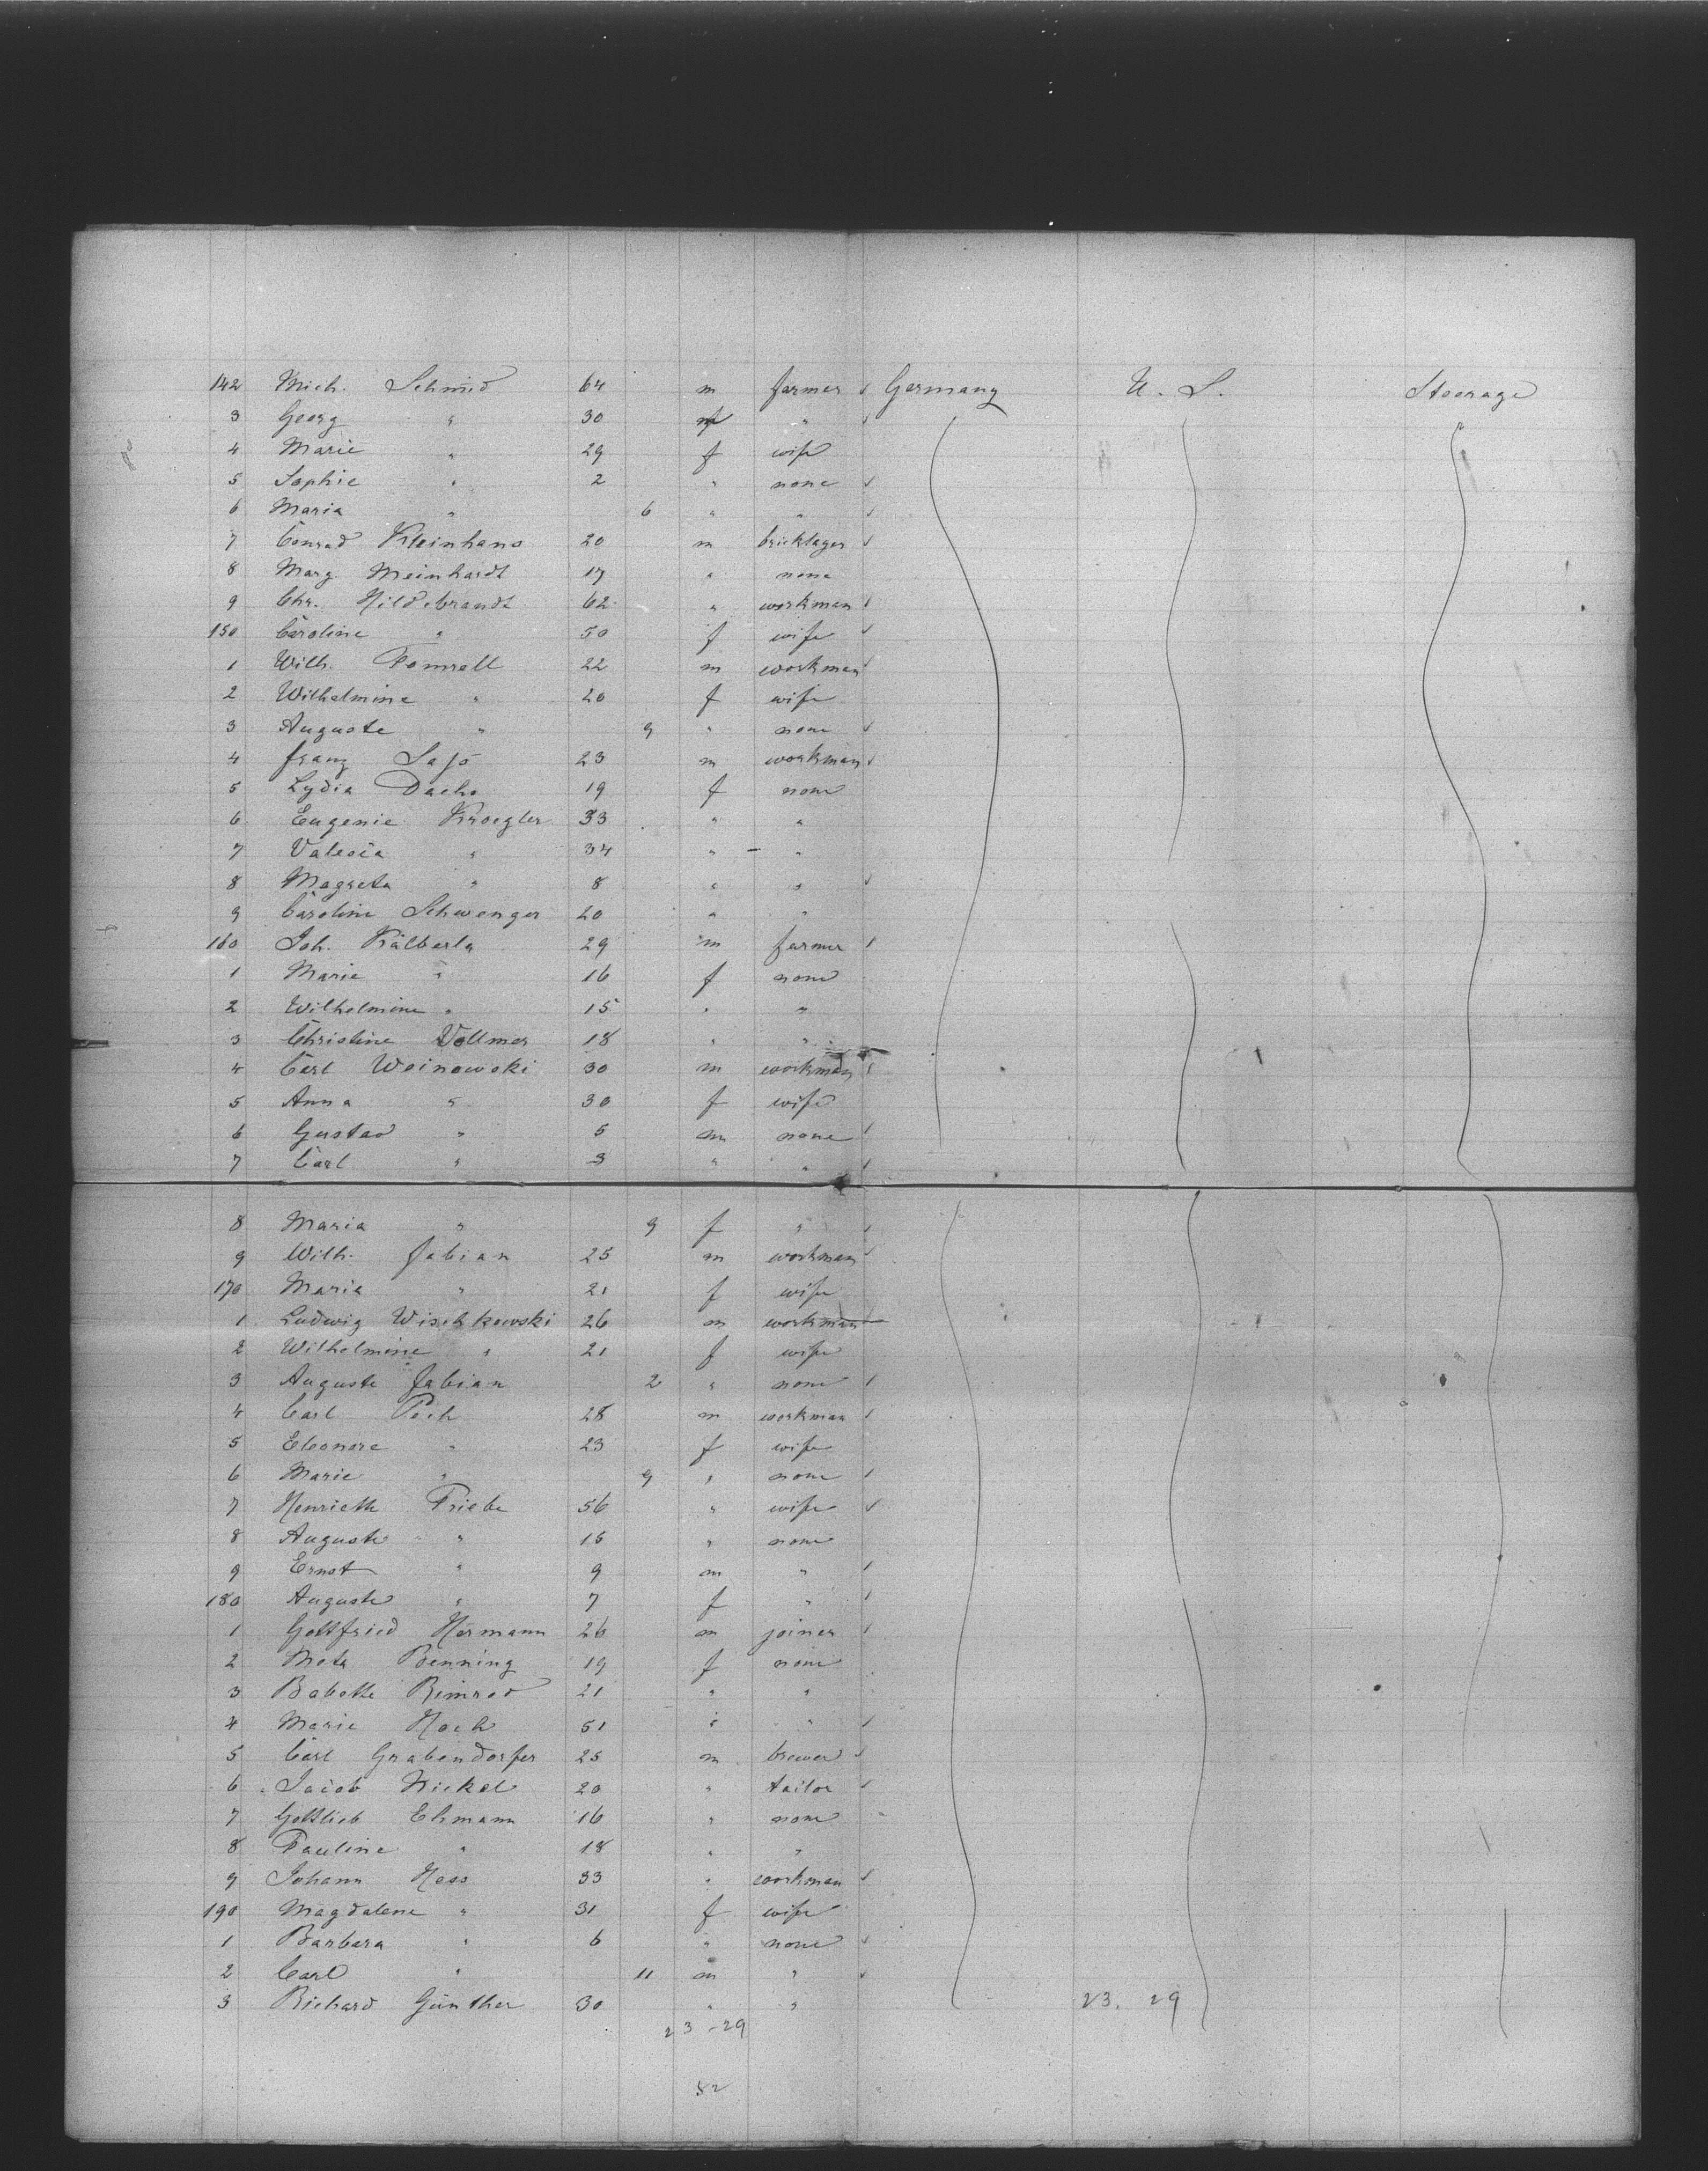 142 Mich. Schmid 64 m farmer Germany U. S. Steerage
3 Georg " 30 m "
4 Marie " 29 f wife
5 Sophie " 2 " none
6 Maria " 6 " "
7 Conrad Kleinhans 20 m bricklayer
8 Marg. Meinhardt 17 " none
9 Chr. Hildebrandt 62 " workman
150 Caroline " 50 f wife
1 Wilh. 22 m workman
2 Wilhelmine " 20 f wife
3 Auguste " 9 " none
4 Franz 23 m workman
5 Lydia Dachs 19 f none
6 Eugenie Kroegler 33 " "
7 " 34 " "
8 Magreta " 8 " "
9 Caroline Schwenger 20 " "
160 Joh. Kälberla 29 m farmer
1 Marie " 16 f none
2 Wilhelmine " 15 " "
3 Christine Vollmer 18 " "
4 Carl Woinowski 30 m workman
5 Anna " 30 f wife
6 Gustav " 5 m none
7 Carl " 3 " "
8 Maria " 9 f "
9 Wilh. Fabian 25 m workman
170 Maria " 21 f wife
1 Ludwig Wischkowski 26 m workman
2 Wilhelmine " 21 f wife
3 Auguste Fabian 2 " none
4 Carl Pech 28 m workman
5 Eleonore " 23 f wife
6 Marie " 9 " none
7 Henriette Friebe 56 " wife
8 Auguste " 15 " none
9 Ernst " 9 m "
180 Auguste " 7 f "
1 Gottfried Hermann 26 m joiner
2 Meta Benning 19 f none
3 Babette Rimrod 21 " "
4 Marie Hoch 51 " "
5 Carl Grabendorfer 25 m brewer
6 Jacob Nickel 20 " tailor
7 Gottlieb Ehmann 16 " none
8 Pauline " 18 " "
9 Johann Hess 33 " workman
190 Magdalene " 31 f wife
1 Barbara " 6 " none
2 Carl " 11 m "
3 Richard Günther 30 " " 23. 29
23 - 29
52